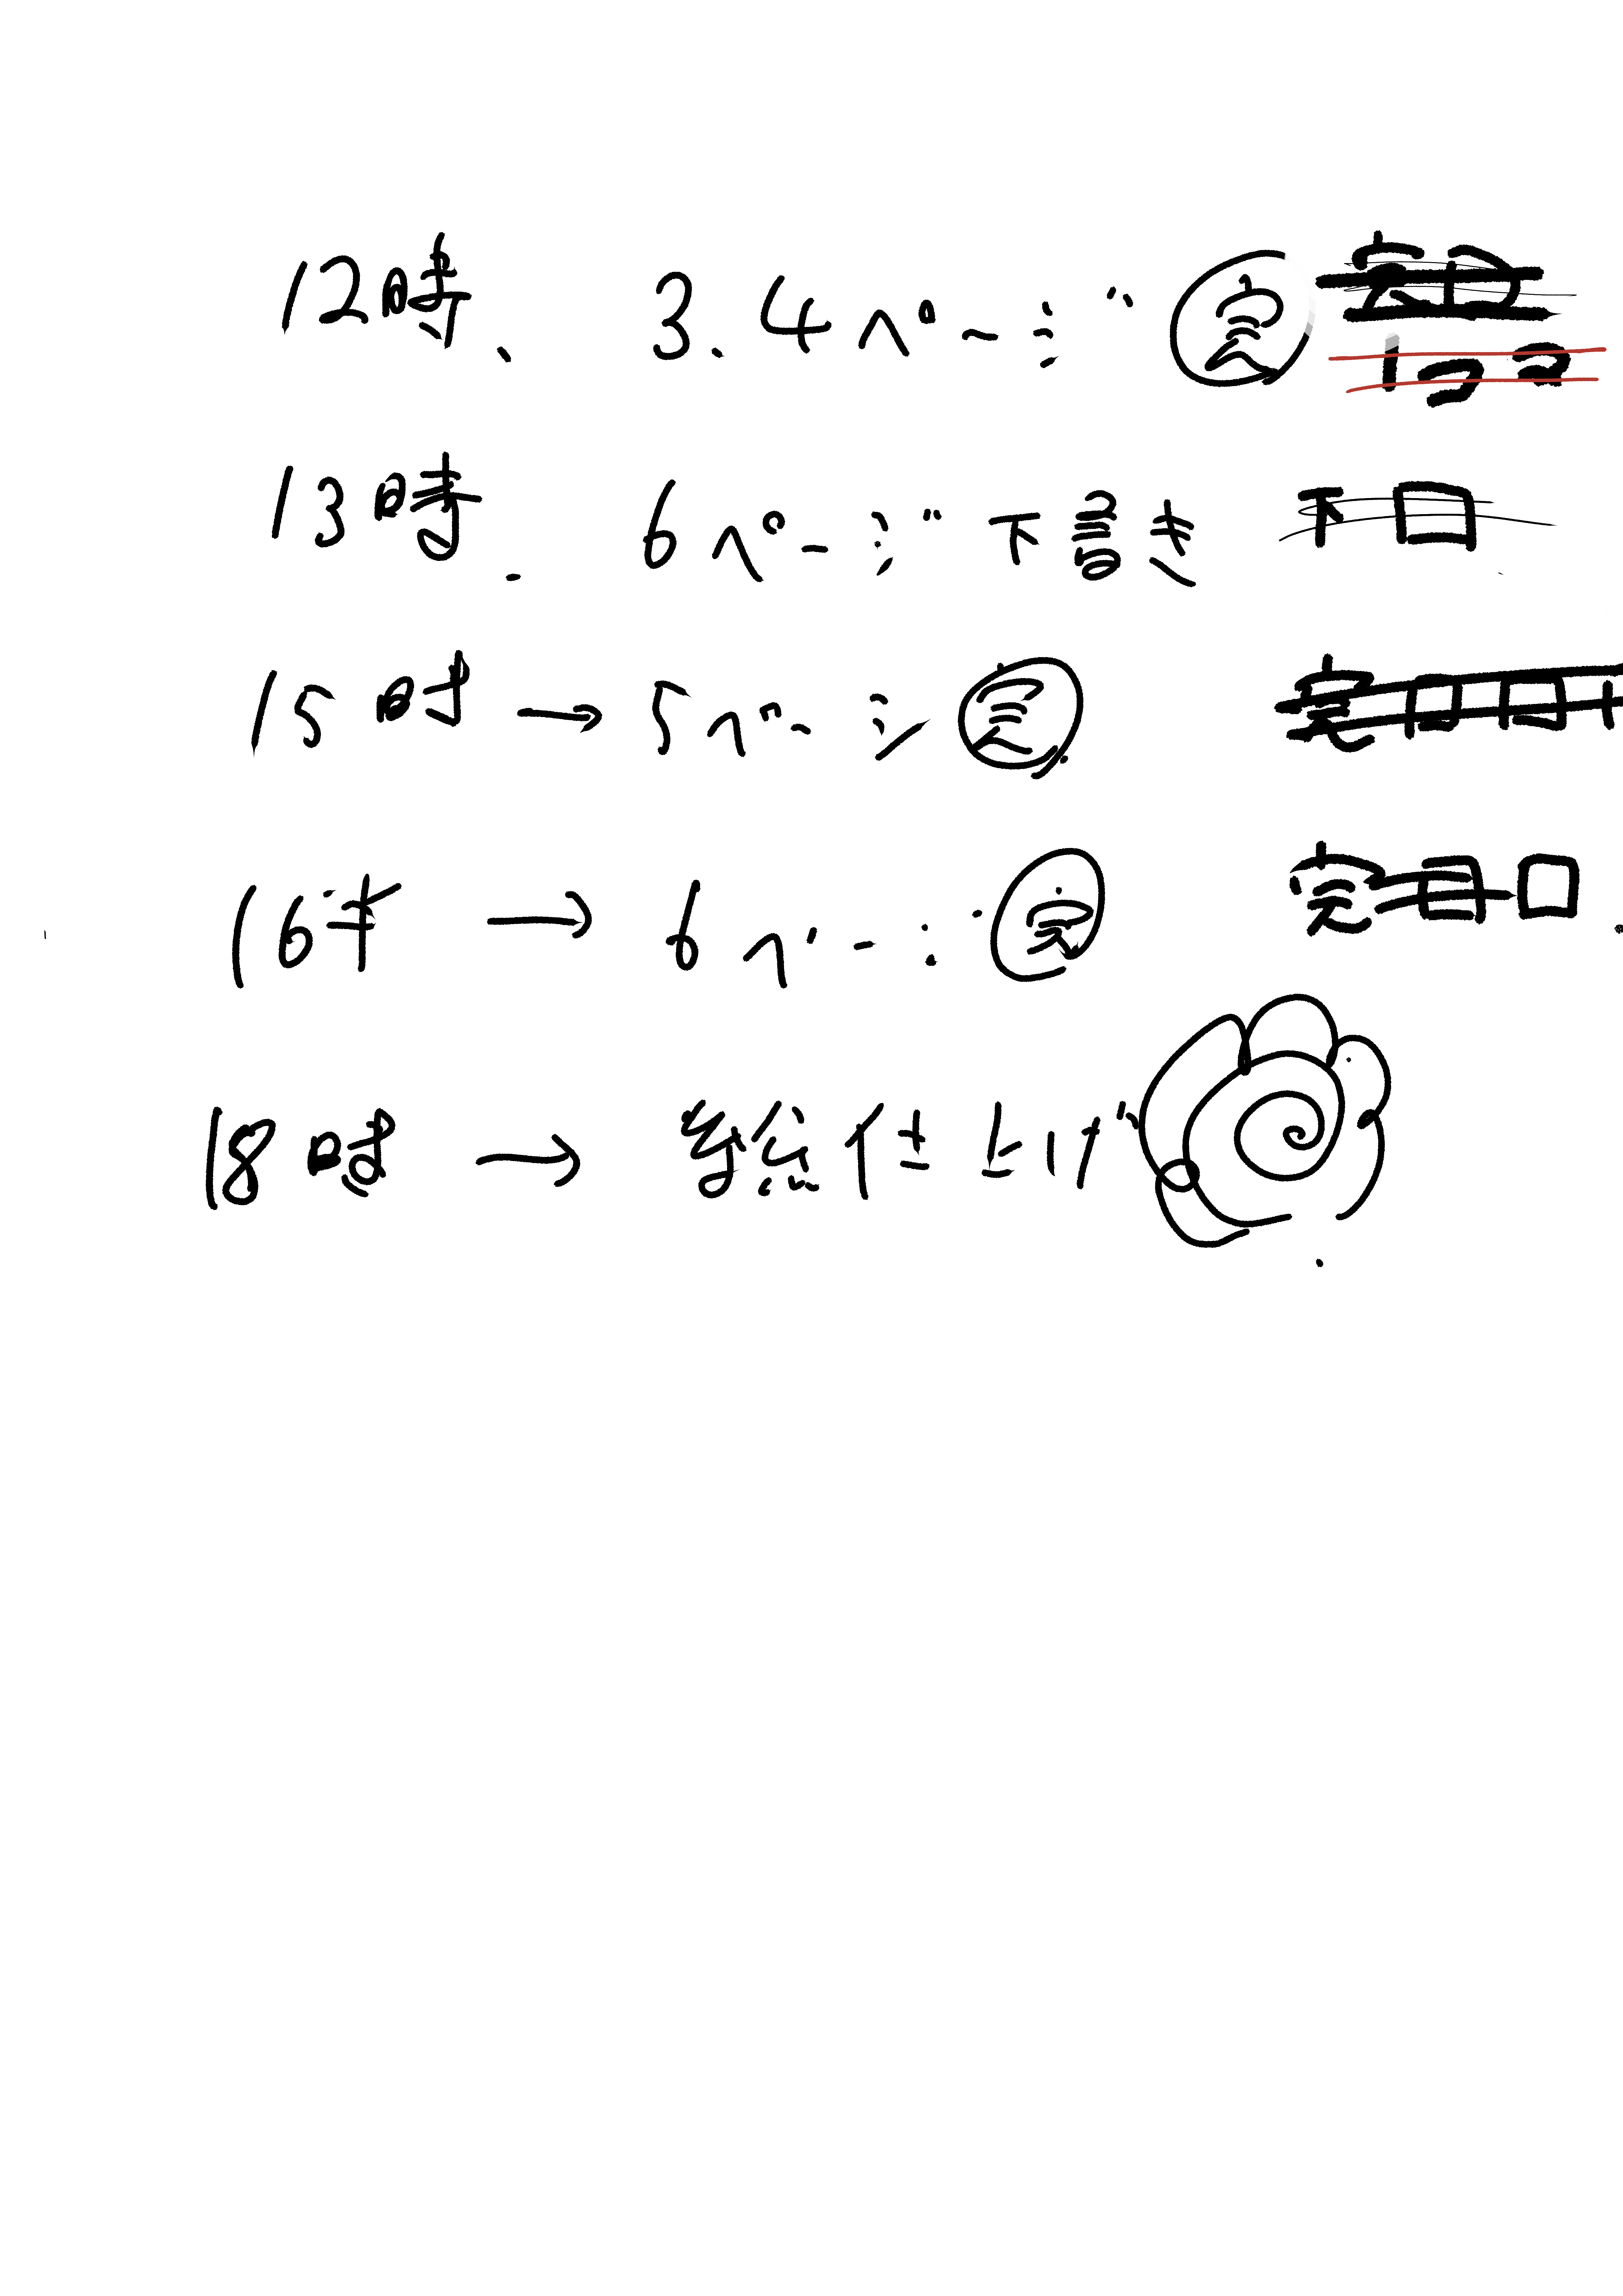 12時、 3.4ページ 完
13時. 6ページ下書き 下口
15時 → 5ページ 完
16半 → 6ページ 完 完
18時 → 総仕上げ